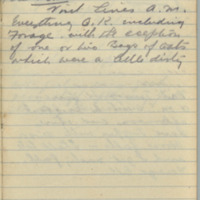 Visit Lines A.M.
Everything O.K. including
Forage with the exception
of one or two Bags of Oats
which were a little dirty